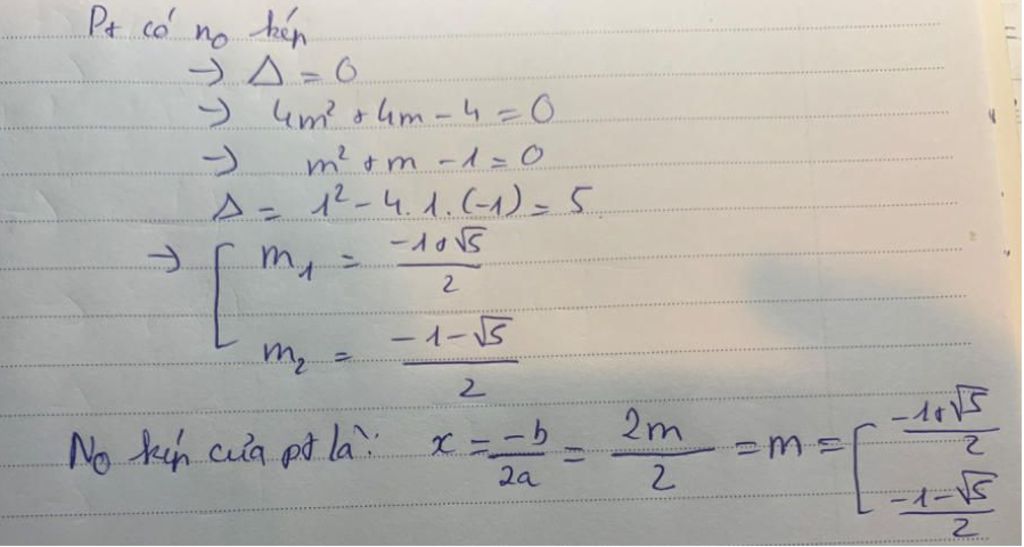 Pt có no kép
→ Δ = 0
→ 4m² + 4m - 4 = 0
→ m² + m - 1 = 0
Δ = 1² - 4.1.(-1) = 5.
→ [ m₁ = (-1+√5)/2
m₂ = (-1-√5)/2
No kép của pt là: x = -b/2a = 2m/2 = m = [ (-1+√5)/2
(-1-√5)/2